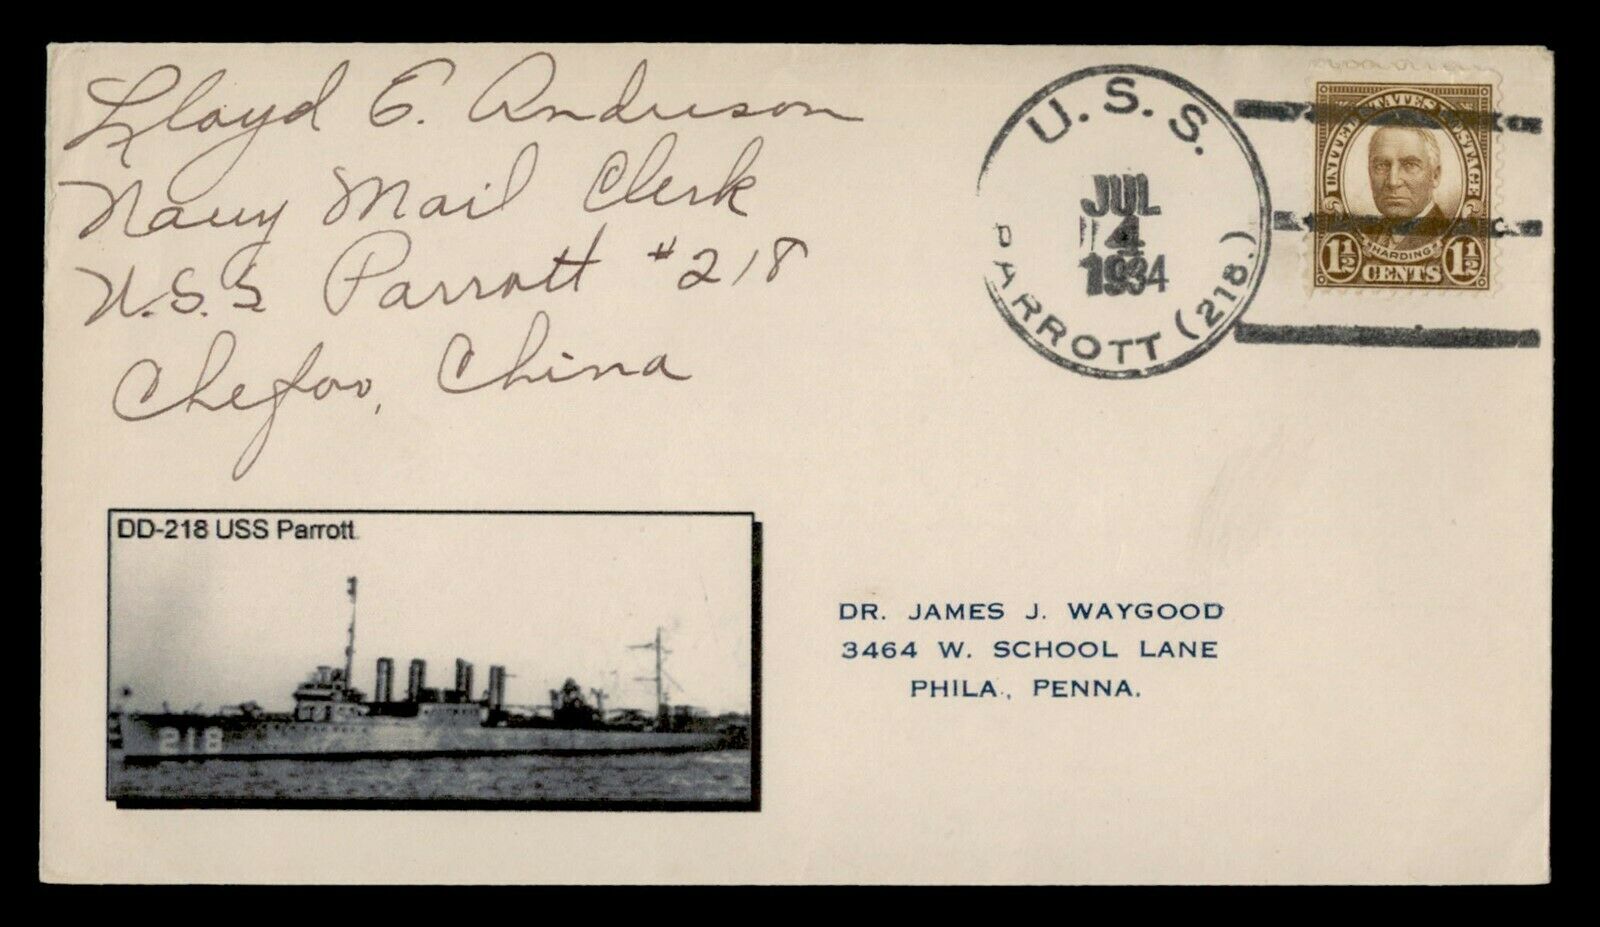 Lloyd E. Anderson
Navy Mail Clerk
U.S.S. Parrott #218
Chefoo, China
U.S.S.
JUL
4
1934
PARROTT (218.)
UNITED STATES POSTAGE
HARDING
1½ CENTS 1½
DD-218 USS Parrott
218
DR. JAMES J. WAYGOOD
3464 W. SCHOOL LANE
PHILA., PENNA.